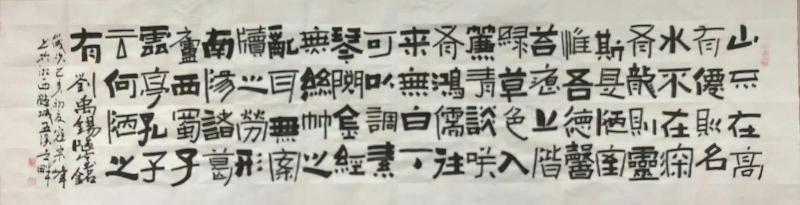 山不在高
有僊則名
水不在深
有龍則靈
斯是陋室
惟吾德馨
苔痕上階
緑草色入
簾青談咲
有鴻儒往
来無白丁
可以調素
琴閲金經
無絲竹之
亂耳無案
牘之勞形
南陽諸葛
廬西蜀子
雲亭孔子
云何陋之
有
劉禹錫陋室銘
歲次己亥初夏